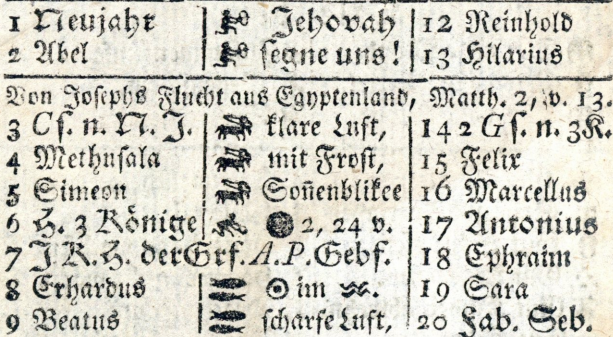 1 Neujahr Jehovah 12 Reinhold
2 Abel segne uns! 13 Hilarius
Von Josephs Flucht aus Egyptenland, Matth. 2, v. 13.
3 C s. n. N. J. klare Luft, 14 2 G s. n. 3K.
4 Methusala mit Frost, 15 Felix
5 Simeon Soñenblikke 16 Marcellus
6 H. 3 Könige 2, 24 v. 17 Antonius
7 J. K. H. der Grf. A. P. Gebf. 18 Ephraim
8 Erhardus ☉ im ♒. 19 Sara
9 Beatus scharfe Luft, 20 Fab. Seb.